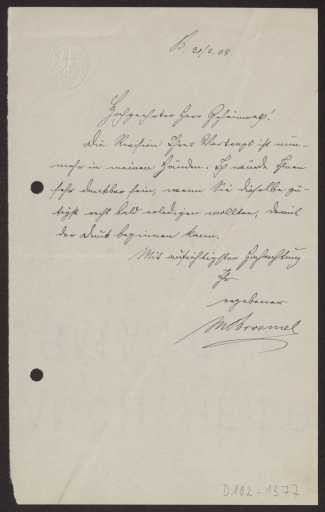 B. 20/2. 08.
Hochgeehrter Herr Geheimrath!
Die Revision Ihres Vortrags ist nun-
mehr in meinen Händen. Ich würde Ihnen
sehr dankbar sein, wenn Sie dieselbe gü-
tigst recht bald erledigen wollten, damit
der Druck beginnen kann.
Mit aufrichtigster Hochachtung
Ihr
ergebener
M Broemel
D.102-1377